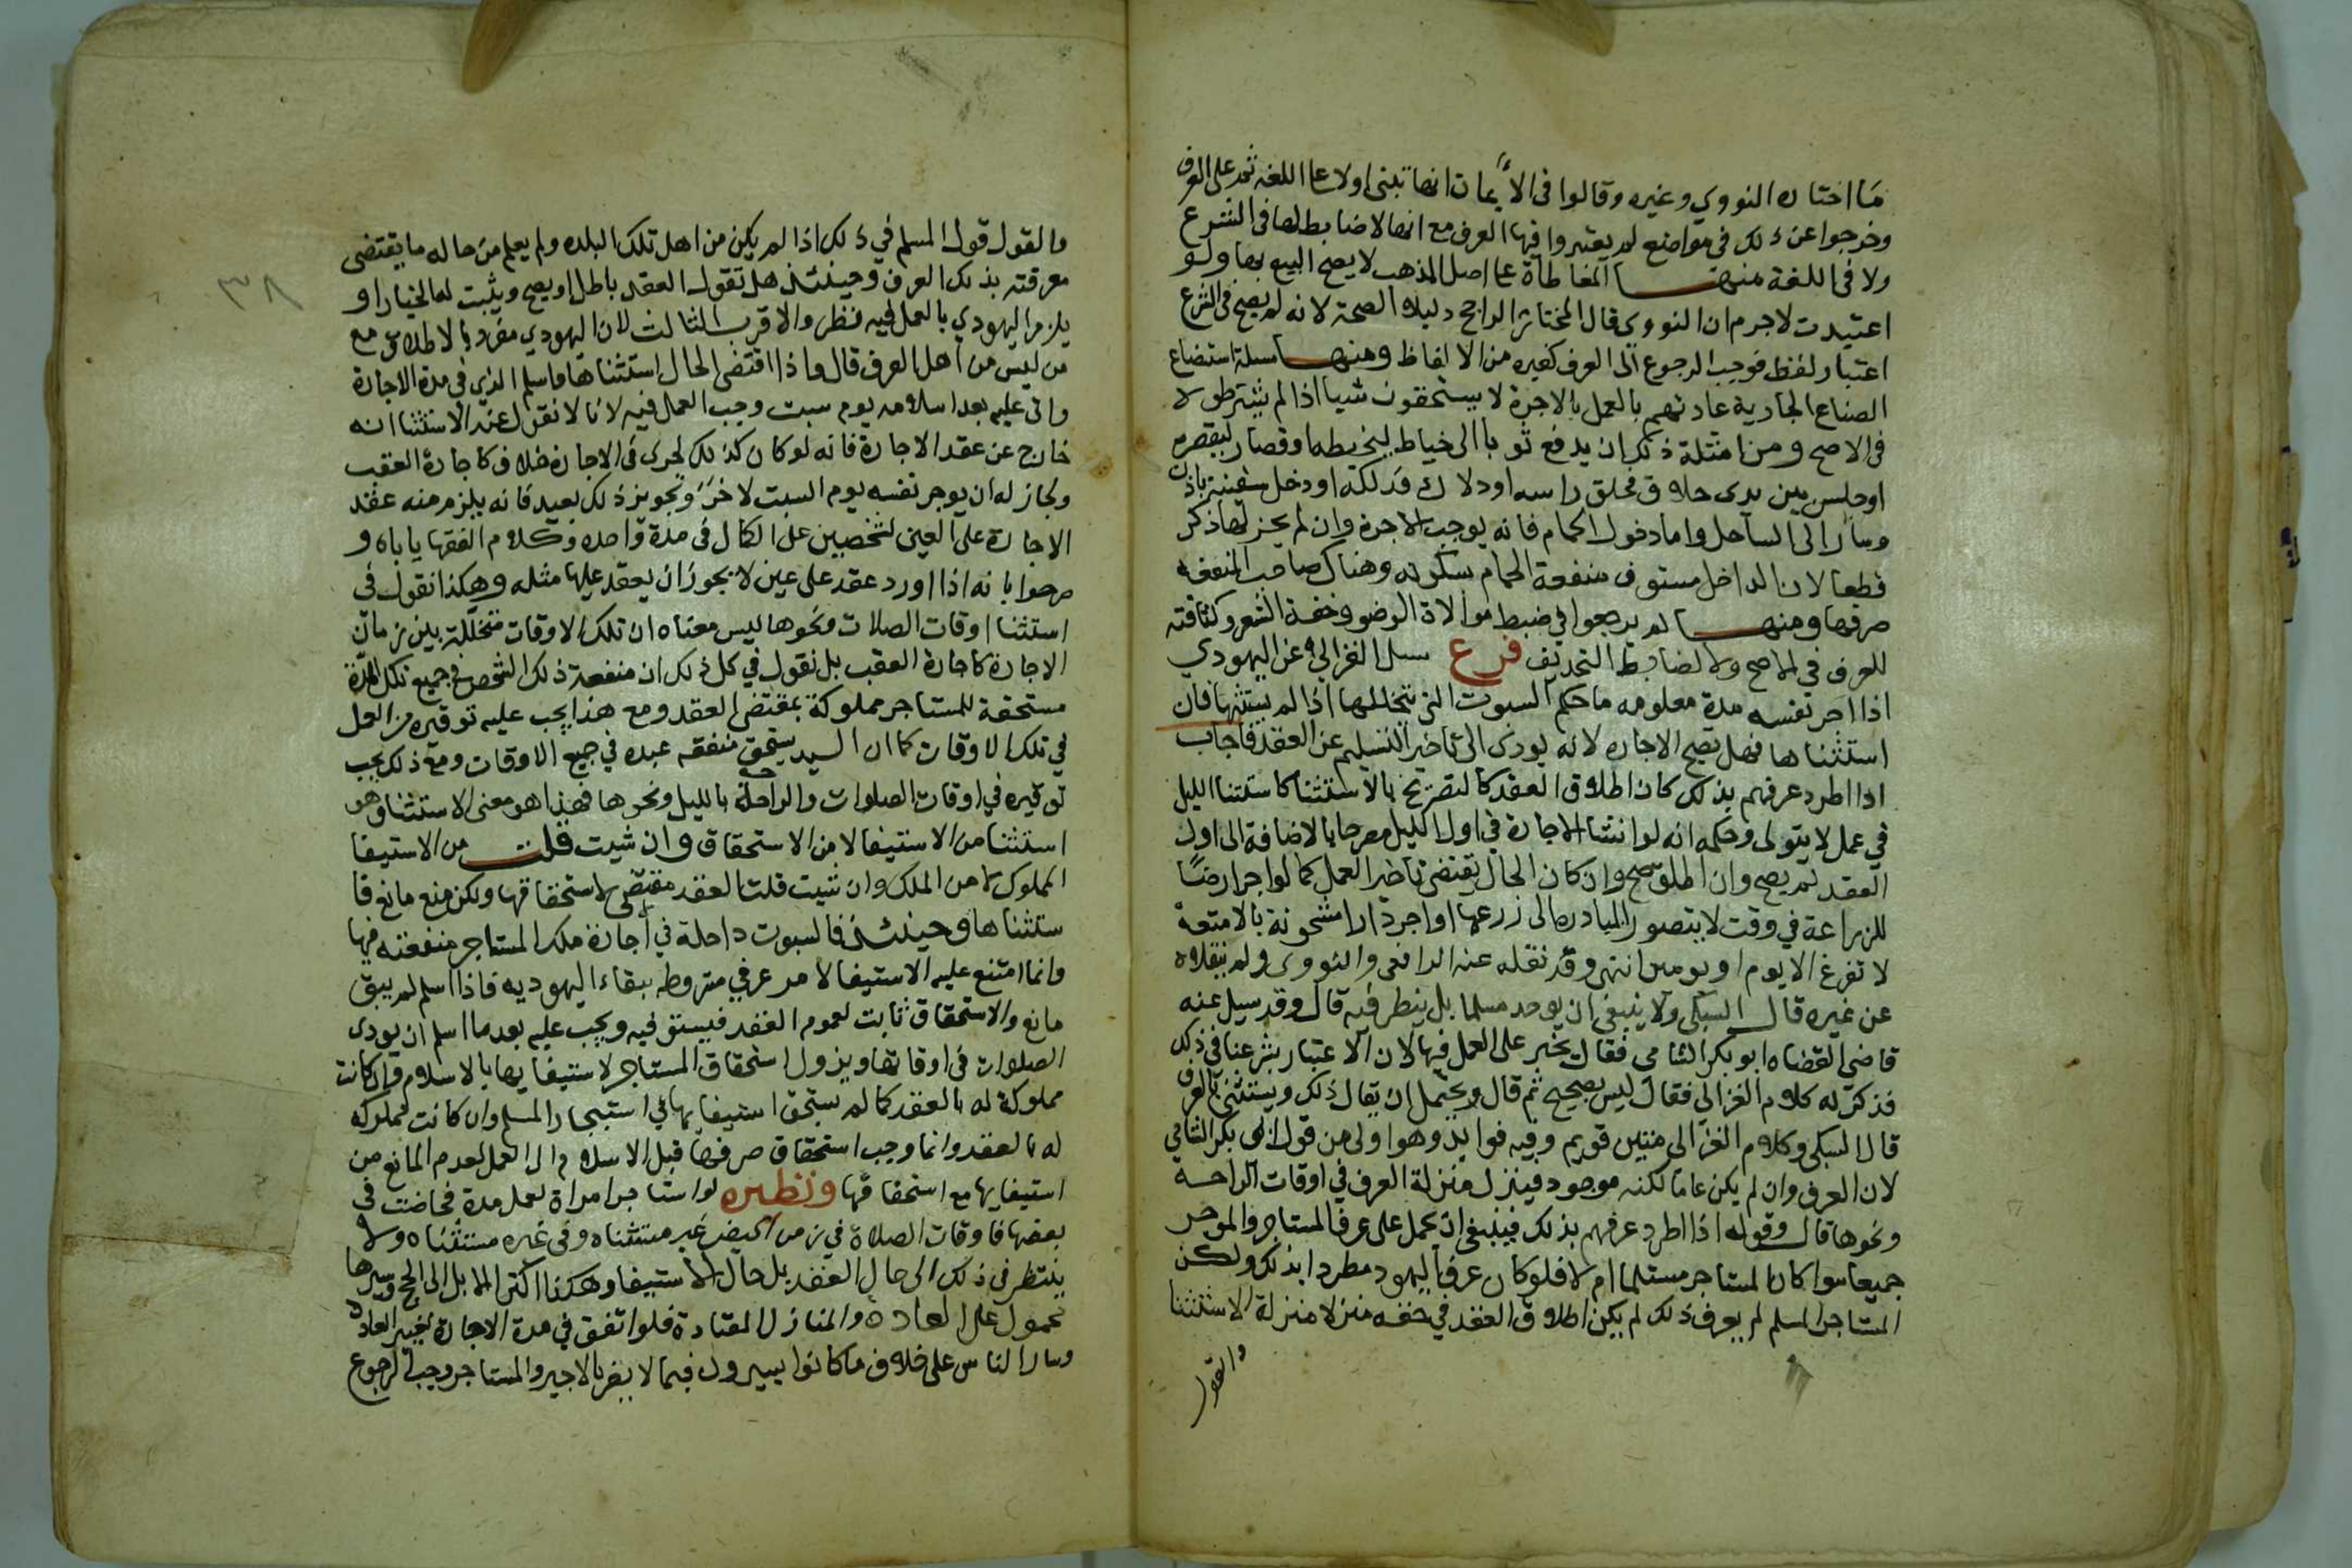 ما اختاره النووي وغيره وقالوا في الأيمان انها تبنى اولا على اللغة ثم على العرف
وخرجوا عن ذلك في مواضع لم يعتبروا فيها العرف مع انها لا ضابط لها في الشرع
ولا في اللغة منها المعاطاة على اصل المذهب لا يصح البيع بها ولو
اعتيدت لا جرم ان النووي قال المختار الراجح دليلا الصحة لانه لم يصح في الشرع
اعتبار لفظ فوجب الرجوع الى العرف كغيره من الالفاظ ومنها مسلة استصناع
الصناع الجارية عادتهم بالعمل بالاجرة لا يستحقون شيا اذا لم يشترطوه
في الاصح ومن امثلة ذلك ان يدفع ثوبا الى خياط ليخيطه او قصار ليقصره
او جلس بين يدي حلاق فحلق راسه او دلاك فدلكه او دخل سفينة باذن
وسار الى الساحل واما دخول الحمام فانه يوجب الاجرة وان لم يجر لها ذكر
قطعا لان الداخل مستوف منفعة الحمام بسكوته وهناك صاحب المنفعة
صرفها ومنها لم يرجعوا في ضبط موالاة الوضو وخفة الشعر وكثافته
للعرف في الاصح ولا لضابط التحديف فرع سيل الغزالي عن اليهودي
اذا اجر نفسه مدة معلومه ما حكم السبوت التي تتخللها اذا لم يستثنها فان
استثناها فهل يصح الاجاره لانه يودي الى تاخير التسليم عن العقد فاجاب
اذا اطرد عرفهم بذلك كان اطلاق العقد كالتصريح بالاستثنا كاستثنا الليل
في عمل لا يتولى وحكمه انه لو انشا الاجارة في اول الليل مصرحا بالاضافة الى اول
العقد لم يصح وان اطلق صح وان كان الحال يقتضي تاخير العمل كما لو اجر ارضا
للزراعة في وقت لا يتصور المبادره الى زرعها او اجر دارا مشحونة بالامتعة
لا تفرغ الا يوم او يومين انتهى وقد نقله عنه الرافعي والنووي ولم ينقلاه
عن غيره قال السبكي ولا ينبغي ان يوخذ مسلما بل ينظر فيه قال وقد سيل عنه
قاضي القضاه ابو بكر الشامي فقال يجبر على العمل فيها لان الاعتبار بشرعنا في ذلك
فذكر له كلام الغزالي فقال ليس بصحيح ثم قال ويحتمل ان يقال ذلك ويستثنى بالعرف
قال السبكي وكلام الغزالي متين قويم وفيه فوايد وهو اولى من قول ابي بكر الشامي
لان العرف وان لم يكن عاما لكنه موجود فينزل منزلة العرف في اوقات الراحة
ونحوها قال وقوله اذا اطرد عرفهم بذلك فينبغي ان يحمل على عرف المستاجر والموجر
جميعا سوا كان المستاجر مسلما ام لا فلو كان عرف اليهود مطردا بذلك ولكن
المستاجر المسلم لم يعرف ذلك لم يكن اطلاق العقد في حقه منزلا منزلة الاستثنا
والقول
٣٨
والقول قول المسلم في ذلك اذا لم يكن من اهل تلك البلده ولم يعلم من حاله ما يقتضي
معرفته بذلك العرف وحينئذ هل تقول العقد باطل او يصح ويثبت له الخيار او
يلزم اليهودي بالعمل فيه نظر والاقرب الثالث لان اليهودي مفرد بالاطلاق مع
من ليس من اهل العرف قال واذا اقتضى الحال استثناها واسلم الذي في مدة الاجارة
واتى عليه بعد اسلامه يوم سبت وجب العمل فيه لانا لا نقول عند الاستثنا انه
خارج عن عقد الاجارة فانه لو كان كذلك لجرى في الاجاره خلاف كاجارة العقب
ولجاز له ان يوجر نفسه يوم السبت لاخر وتجويز ذلك بعيد فانه يلزم منه عقد
الاجارة على العين لشخصين على الكمال في مدة واحده وكلام الفقها ياباه و
صرحوا بانه اذا اورد عقد على عين لا يجوز ان يعقد عليها مثله وهكذا نقول في
استثنا اوقات الصلات ونحوها ليس معناه ان تلك الاوقات متخللة بين زمان
الاجارة كاجارة العقب بل نقول في كل ذلك ان منفعة ذلك الشخص في جميع تلك المدة
مستحقة للمستاجر مملوكة بمقتضى العقد ومع هذا يجب عليه توقيره من العمل
في تلك الاوقات كما ان السيد يستحق منفعه عبده في جميع الاوقات ومع ذلك يجب
توقيره في اوقات الصلوات والراحة بالليل ونحوها فهذا هو معنى الاستثنا وهو
استثنا من الاستيفا لا من الاستحقاق وان شيت قلت من الاستيفا
المملوك لا من الملك وان شيت قلت العقد مقتضي لاستحقاقها ولكن منع مانع فا
ستثناها وحينئذ فالسبوت داخلة في اجارة ملك المستاجر منفعته فيها
وانما امتنع عليه الاستيفا لامر عرفي مشروطه ببقاء اليهوديه فاذا اسلم لم يبق
مانع والاستحقاق ثابت لعموم العقد فيستوفيه ويجب عليه بعد ما اسلم ان يودي
الصلوات في اوقاتها ويزول استحقاق المستاجر لاستيفايها بالاسلام وان كانت
مملوكة له بالعقد كما لم يستحق استيفايها في استيجار المسلم وان كانت مملوكه
له بالعقد وانما وجب استحقاق صرفها قبل الاسلام الى العمل لعدم المانع من
استيفايها مع استحقاقها ونظيره لو استاجر امراة لعمل مدة فحاضت في
بعضها فاوقات الصلاة في زمن الحيض غير مستثناه وفي غيره مستثناه ولا
ينتظر في ذلك الى حال العقد بل حال الاستيفا وهكذا اكترا الابل الى الحج وسيرها
محمول على العاده والمنازل المعتادة فلو اتفق في مدة الاجارة تغيير العادة
وسار الناس على خلاف ما كانوا يسيرون فيما لا يضر بالاجير والمستاجر وجب الرجوع